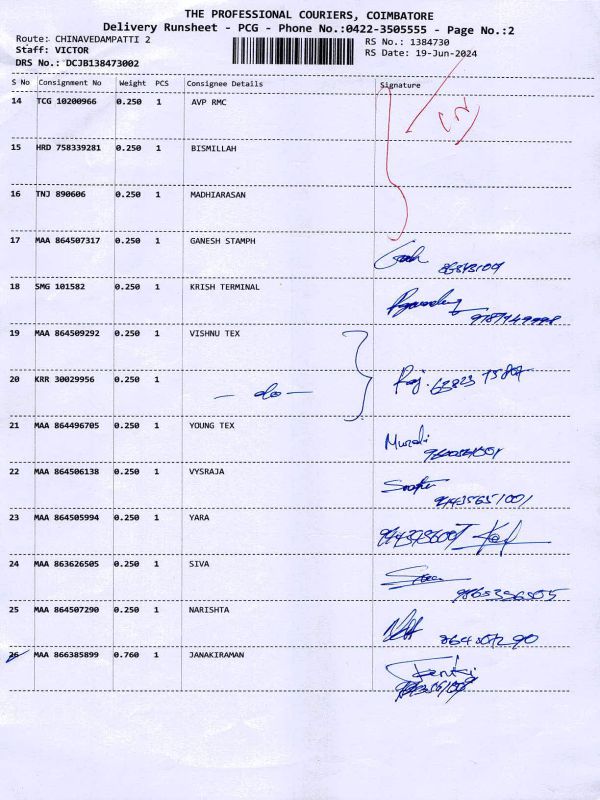 THE PROFESSIONAL COURIERS, COIMBATORE
Delivery Runsheet - PCG - Phone No.:0422-3505555 - Page No.:2
Route: CHINAVEDAMPATTI 2
RS No.: 1384730
Staff: VICTOR
RS Date: 19-Jun-2024
DRS No.: DCJB138473002
S No Consignment No Weight PCS Consignee Details Signature
14 TCG 10200966 0.250 1 AVP RMC
15 HRD 758339281 0.250 1 BISMILLAH
16 TNJ 890606 0.250 1 MADHIARASAN
17 MAA 864507317 0.250 1 GANESH STAMPH
18 SMG 101582 0.250 1 KRISH TERMINAL
19 MAA 864509292 0.250 1 VISHNU TEX
20 KRR 30029956 0.250 1 - do - Raj.
21 MAA 864496705 0.250 1 YOUNG TEX Murali
22 MAA 864506138 0.250 1 VYSRAJA
23 MAA 864505994 0.250 1 YARA
24 MAA 863626505 0.250 1 SIVA
25 MAA 864507290 0.250 1 NARISHTA
864507290
26 MAA 866385899 0.760 1 JANAKIRAMAN